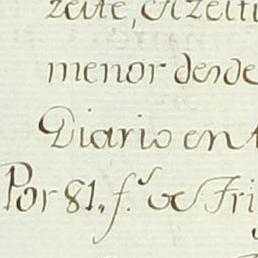 zeite, el zeiti
menor desde
Diario en t
Por 81, f.s de Fri